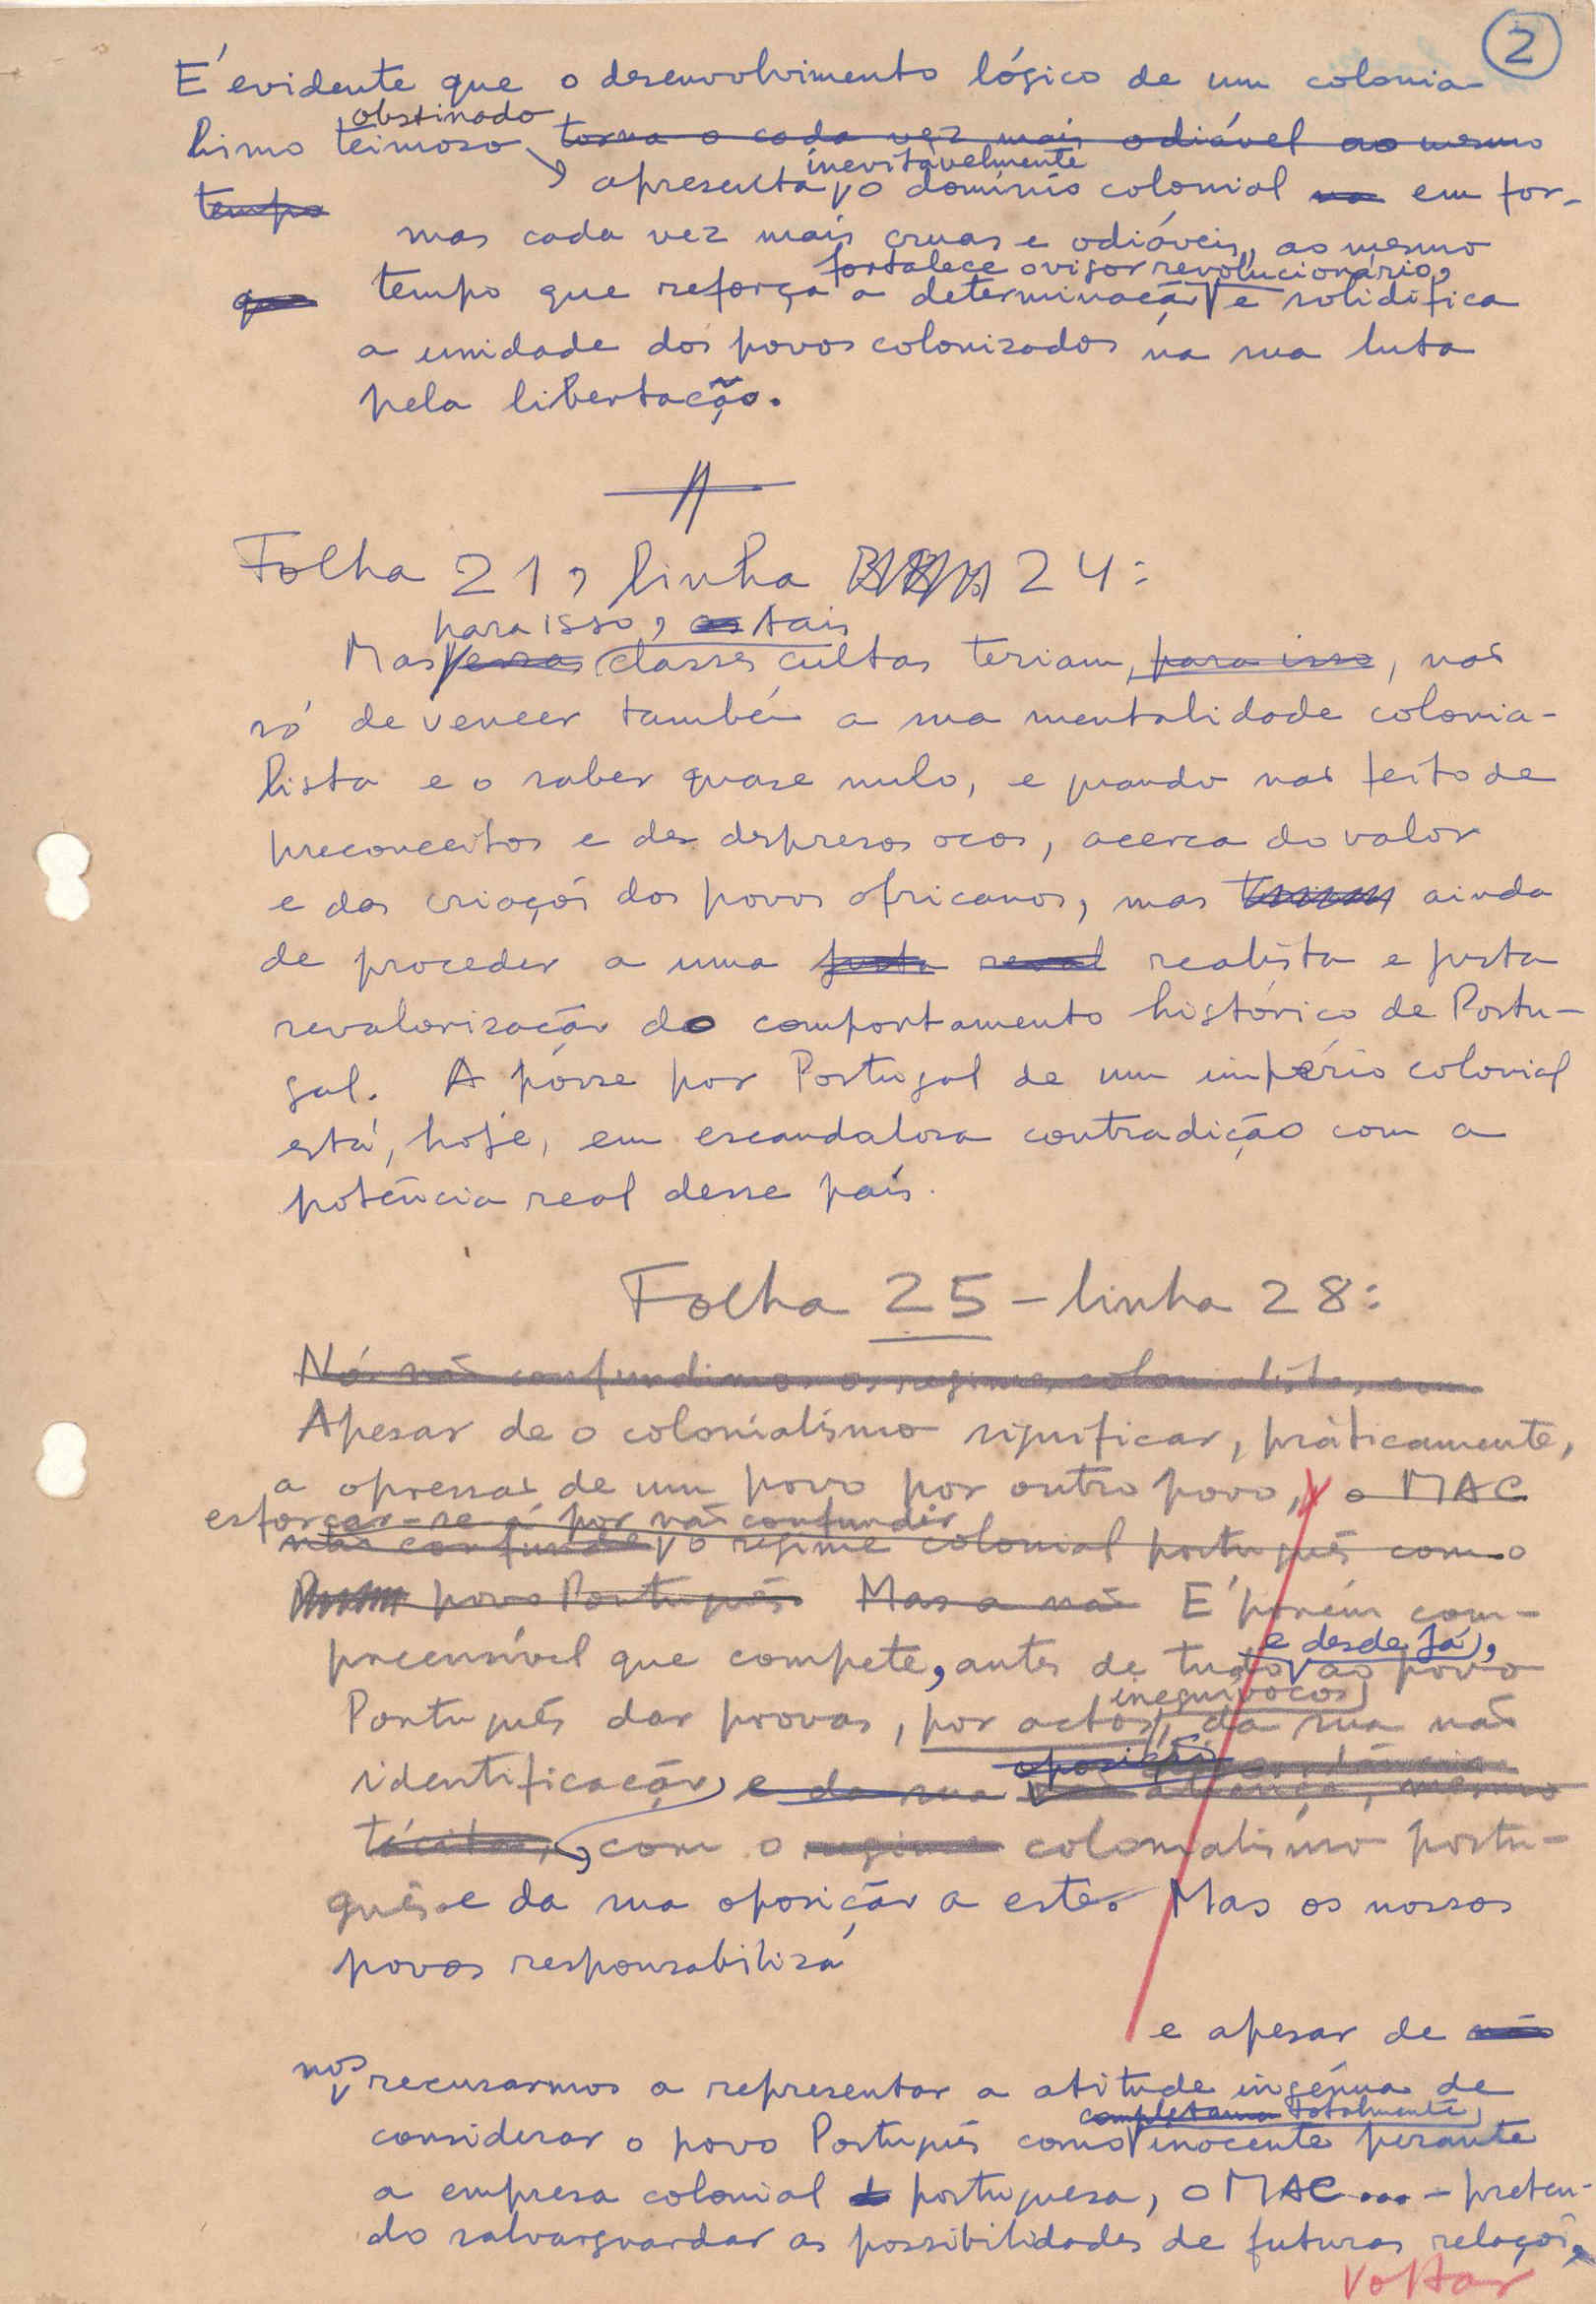 2
É evidente que o desenvolvimento lógico de um colonia-
obstinado
lismo teimoso torna o cada vez mais odiável ao mesmo
inevitàvelmente
tempo apresenta, o domínio colonial na em for-
mas cada vez mais cruas e odiáveis, ao mesmo
fortalece o vigor revolucionário,
que tempo que reforça a determinação e solidifica
a unidade dos povos colonizados na sua luta
pela libertação.
Folha 21, linha 24:
para isso, as tais
Mas essas classes cultas teriam, para isso, não
só de vencer também a sua mentalidade colonia-
lista e o saber quase nulo, e quando não feito de
preconceitos e de desprezos ocos, acerca do valor
e das criações dos povos africanos, mas teriam ainda
de proceder a uma justa realista e justa
revalorização do comportamento histórico de Portu-
gal. A pósse por Portugal de um império colonial
está, hoje, em escandalosa contradição com a
potência real desse país.
Folha 25 - linha 28:
Nós não confundimos os regimes colonialistas com
Apesar de o colonialismo significar, pràticamente,
a opressão de um povo por outro povo, o MAC
esforçar-se-á por não confundir
não confunde o regime colonial português com o
povo Português. Mas a não É porém com-
preensível que compete, antes de tudo ao povo
e desde já,
Português dar provas, por actos, da sua não
inequívocos
identificação e da sua aliança, mesmo
oposição
tácita, com o regime colonialismo portu-
guês e da sua oposição a este. Mas os nossos
povos responsabilizá
e apesar de não
nos recusarmos a representar a atitude ingénua de
completamen totalmente
considerar o povo Português como inocente perante
a empresa colonial portuguesa, o MAC... - preten-
do salvarguardar as possibilidades de futuras relações
Voltar